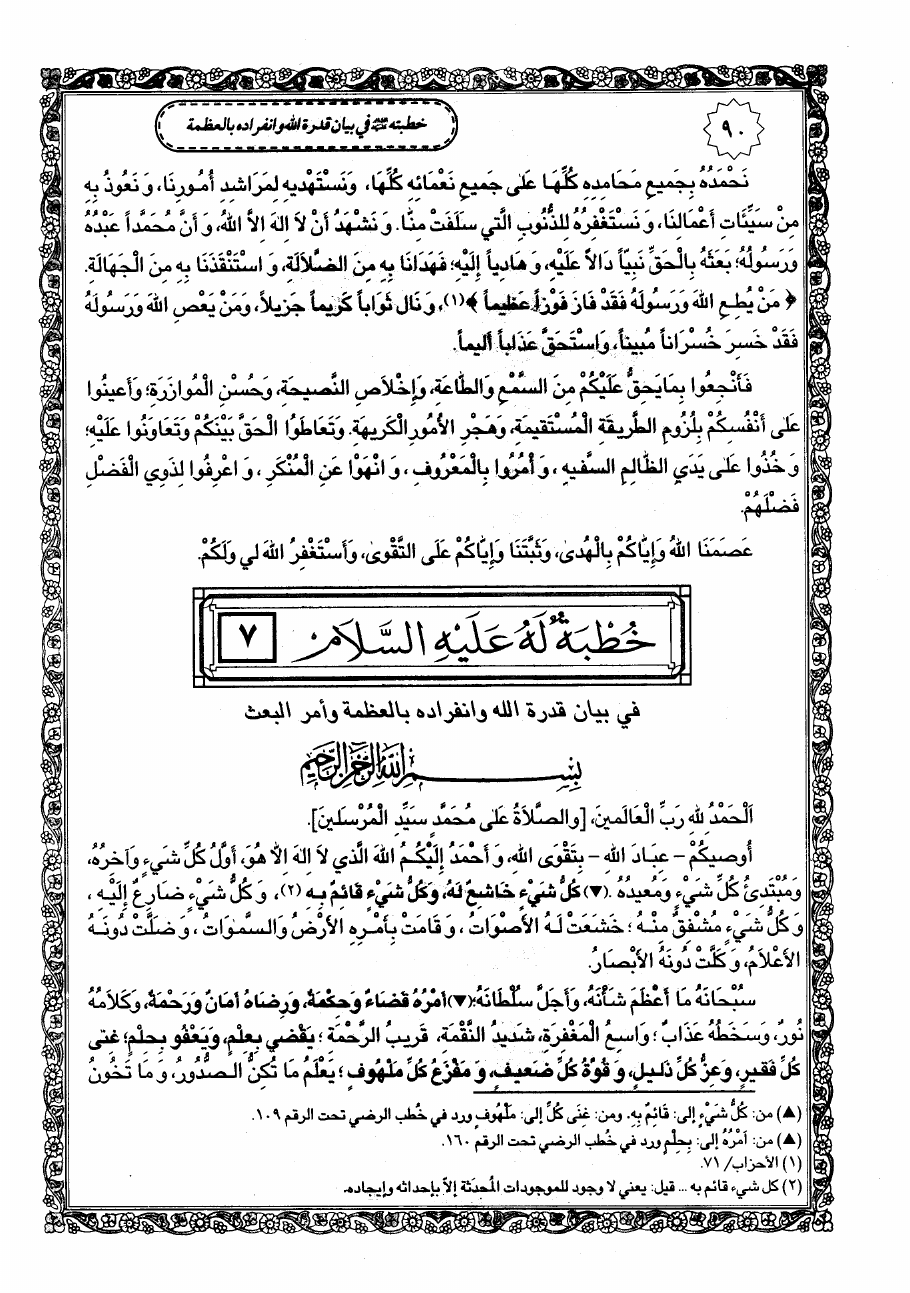 ٩٠
خطبته ﷺ في بيان قدرة الله وانفراده بالعظمة
نَحْمَدُهُ بِجَميعِ مَحَامِدِهِ كُلِّهَا عَلى جَميعِ نَعْمَائِهِ كُلِّهَا، وَنَسْتَهْديهِ لِمَرَاشِدِ أُمُورِنَا، وَ نَعُوذُ بِهِ
مِنْ سَيِّئَاتِ أَعْمَالِنَا، وَ نَسْتَغْفِرُهُ لِلذُّنُوبِ الَّتي سَلَفَتْ مِنَّا. وَ نَشْهَدُ أَنْ لاَ اِلهَ اِلاَّ اللهُ، وَ أَنَّ مُحَمَّداً عَبْدُهُ
وَرَسُولُهُ؛ بَعَثَهُ بِالْحَقِّ نَبِيّاً دَالاًّ عَلَيْهِ، وَ هَادِياً إِلَيْهِ؛ فَهَدَانَا بِهِ مِنَ الضَّلاَلَةِ، وَ اسْتَنْقَذَنَا بِهِ مِنَ الْجَهَالَةِ.
﴿ مَنْ يُطِعِ اللهَ وَرَسُولَهُ فَقَدْ فَازَ فَوْزاً عَظيماً ﴾(١)، وَ نَالَ ثَوَاباً كَريماً جَزيلاً، وَمَنْ يَعْصِ اللهَ وَرَسُولَهُ
فَقَدْ خَسِرَ خُسْرَاناً مُبيناً، وَاسْتَحَقَّ عَذَاباً أَليماً.
فَأَنْجِعُوا بِمَا يَحِقُّ عَلَيْكُمْ مِنَ السَّمْعِ وَالطَّاعَةِ، وَإِخْلاَصِ النَّصيحَةِ، وَحُسْنِ الْمُوَازَرَةِ؛ وَأَعينُوا
عَلى أَنْفُسِكُمْ بِلُزُومِ الطَّريقَةِ الْمُسْتَقيمَةِ، وَهَجْرِ الأُمُورِ الْكَريهَةِ. وَتَعَاطَوُا الْحَقَّ بَيْنَكُمْ وَتَعَاوَنُوا عَلَيْهِ؛
وَ خُذُوا عَلى يَدَيِ الظَّالِمِ السَّفيهِ، وَ أْمُرُوا بِالْمَعْرُوفِ، وَ انْهَوْا عَنِ الْمُنْكَرِ، وَ اعْرِفُوا لِذَوِي الْفَضْلِ
فَضْلَهُمْ.
عَصَمَنَا اللهُ وَإِيَّاكُمْ بِالْهُدى، وَثَبَّتَنَا وَإِيَّاكُمْ عَلَى التَّقْوى، وَأَسْتَغْفِرُ اللهَ لي وَلَكُمْ.
خُطْبَةٌ لَهُ عَلَيْهِ السَّلاَم ٧
في بيان قدرة الله وانفراده بالعظمة وأمر البعث
بِسْمِ اللهِ الرَّحْمٰنِ الرَّحِيمِ
اَلْحَمْدُ لِلهِ رَبِّ الْعَالَمينَ، [والصَّلاَةُ عَلى مُحَمَّدٍ سَيِّدِ الْمُرْسَلينَ].
أُوصيكُمْ – عِبَادَ اللهِ – بِتَقْوَى اللهِ، وَ أَحْمَدُ إِلَيْكُمُ اللهَ الَّذي لاَ اِلهَ اِلاَّ هُوَ، أَوَّلُ كُلِّ شَيْءٍ وَآخِرُهُ،
وَ مُبْتَدِئُ كُلِّ شَيْءٍ وَمُعيدُهُ. (▼) كُلُّ شَيْءٍ خَاشِعٌ لَهُ، وَكُلُّ شَيْءٍ قَائِمٌ بِهِ (٢)، وَ كُلُّ شَيْءٍ ضَارِعٌ إِلَيْهِ،
وَ كُلُّ شَيْءٍ مُشْفِقٌ مِنْهُ؛ خَشَعَتْ لَهُ الأَصْوَاتُ، وَ قَامَتْ بِأَمْرِهِ الأَرْضُ وَالسَّموَاتُ، وَ ضَلَّتْ دُونَهُ
الأَعْلاَمُ، وَ كَلَّتْ دُونَهُ الأَبْصَارُ.
سُبْحَانَهُ مَا أَعْظَمَ شَأْنَهُ، وَأَجَلَّ سُلْطَانَهُ؛(▼) أَمْرُهُ قَضَاءٌ وَحِكْمَةٌ، وَرِضَاهُ أَمَانٌ وَرَحْمَةٌ، وَكَلاَمُهُ
نُورٌ، وَسَخَطُهُ عَذَابٌ؛ وَاسِعُ الْمَغْفِرَةِ، شَديدُ النَّقْمَةِ، قَريبُ الرَّحْمَةِ؛ يَقْضي بِعِلْمٍ، وَيَعْفُو بِحِلْمٍ؛ غِنى
كُلِّ فَقيرٍ، وَعِزُّ كُلِّ ذَليلٍ، وَ قُوَّةُ كُلِّ ضَعيفٍ، وَ مَفْزَعُ كُلِّ مَلْهُوفٍ؛ يَعْلَمُ مَا تُكِنُّ الصُّدُورُ، وَ مَا تَخُونُ
(▲) من: كُلُّ شَيْءٍ إلى: قَائِمٌ بِهِ. ومن: غِنَى كُلِّ إلى: مَلْهُوفٍ ورد في خُطب الرضي تحت الرقم ١٠٩.
(▲) من: أَمْرُهُ إلى: بِحِلْمٍ ورد في خُطب الرضي تحت الرقم ١٦٠.
(١) الأحزاب/ ٧١.
(٢) كل شيء قائم به ... قيل: يعني لا وجود للموجودات المُحدَثة إلاّ بإحداثه وإيجاده.